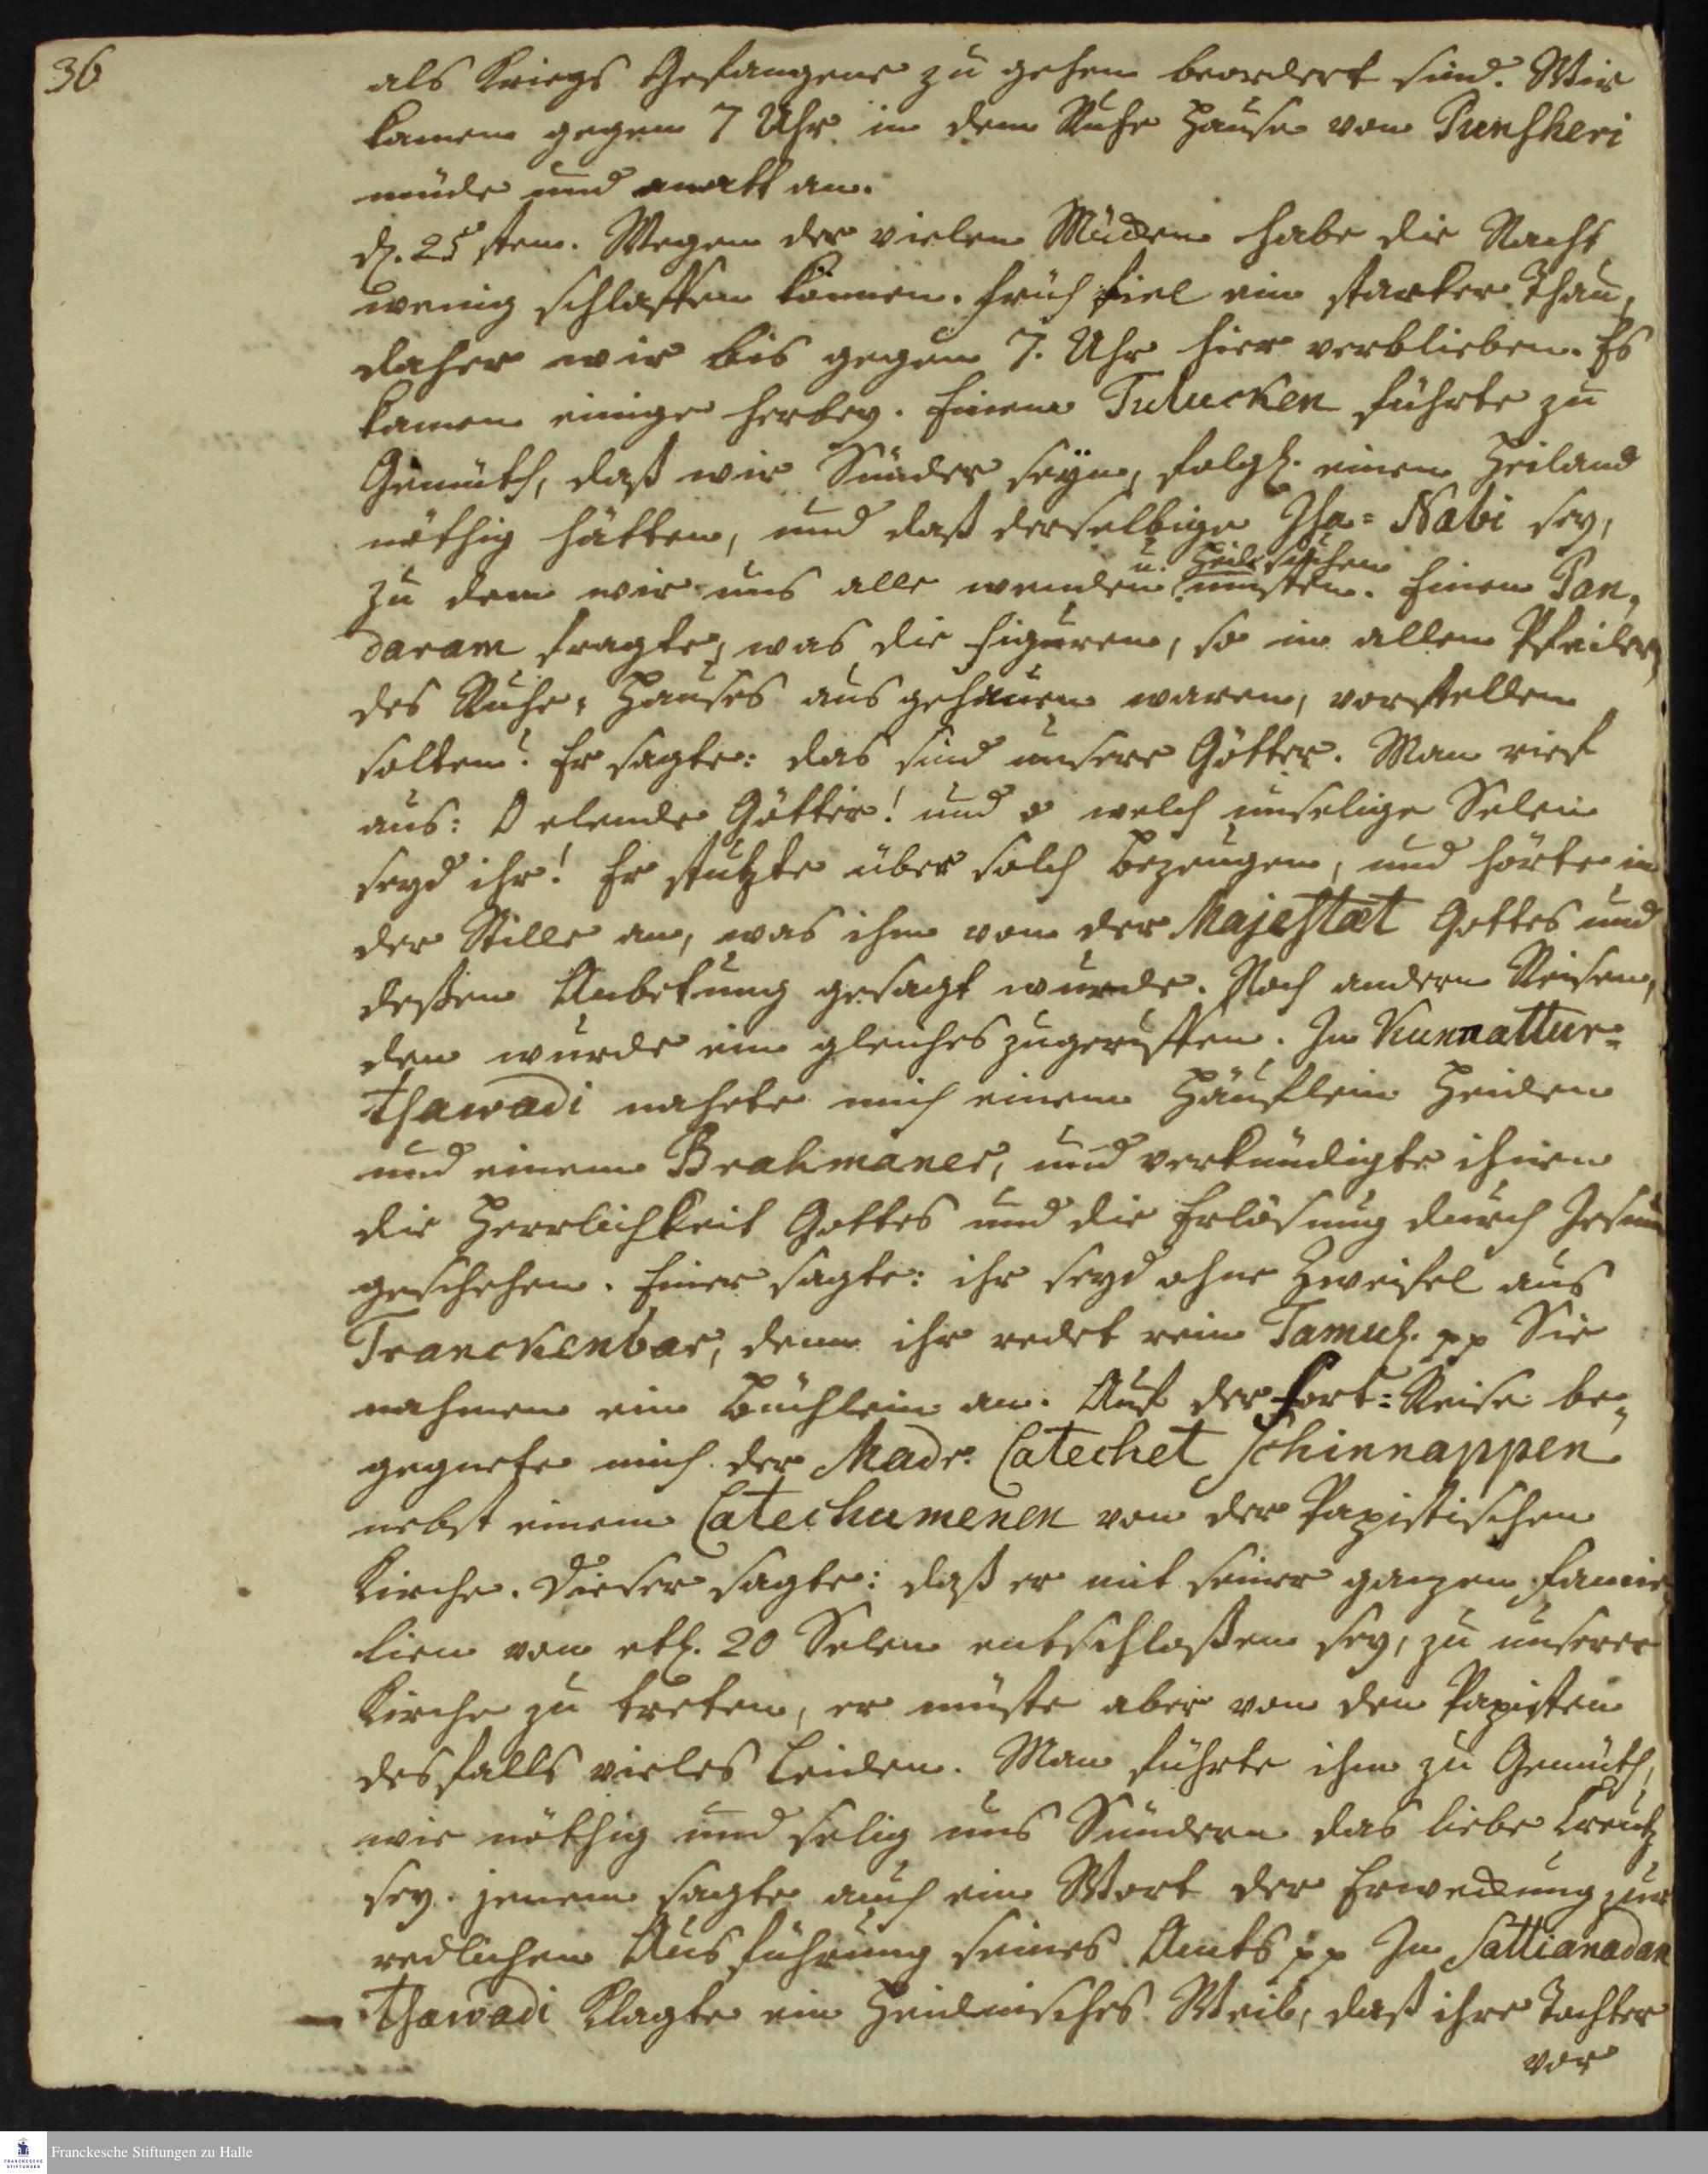 36
als Kriegs Gefangene zu gehen beordert sind. Wir
kamen gegen 7 Uhr in dem Ruhe Hause von Punsheri
müde und matt an.
d. 25sten. Wegen der vielen Mücken habe die Nacht
wenig schlaffen können. Früh fiel ein starker Thau,
daher wir bis gegen 7. Uhr hier verblieben. Es
kamen einige herbey. Einem Tulucken führte zu
Gemüth, daß wir Sünder seyn, folgl. einen Heiland
nöthig hätten, und daß derselbige Isa-Nabi sey,
u. Heil suchen
zu dem wir uns alle wenden müsten. Einen Pan,
daram fragte, was die Figuren, so in allen Pfeilern
des Ruhe-Hauses ausgehauen waren, vorstellen
solten? Er sagte: das sind unsere Götter. Man rief
aus: O elende Götter! und o welch unselige Selen
seyd ihr! Er stutzte über solch Bezeugen, und hörte in
der Stille an, was ihm von der Majestæt Gottes und
deßen Anbetung gesagt wurde. Noch andern Reisen,
den wurde ein gleiches zugeruffen. In Kunnattur-
thawadi nahete mich einem Häuflein Heiden
und einem Brahmaner, und verkündigte ihnen
die Herrlichkeit Gottes und die Erlösung durch Jesum
geschehen. Einer sagte: ihr seyd ohne Zweifel aus
Tranckenbar, denn ihr redet rein Tamul. pp Sie
nahmen ein Büchlein an. Auf der Fort-Reise be-
gegnete mich der Madr. Catechet Schinnappen
nebst einem Catechumenen von der Papistischen
Kirche. Dieser sagte: daß er mit seiner ganzen Fami-
lien von etl. 20 Selen entschloßen sey, zu unserer
Kirche zu treten, er müste aber von den Papisten
desfalls vieles leiden. Man führte ihm zu Gemüth,
wie nöthig und selig uns Sündern das liebe Creutz
sey. jenem sagte auch ein Wort der Erweckung zur
redlichen Ausführung seines Amts pp In Sattianadan
thawadi klagte ein Heidnisches Weib, daß ihre Tochter
vor
Franckesche Stiftungen zu Halle